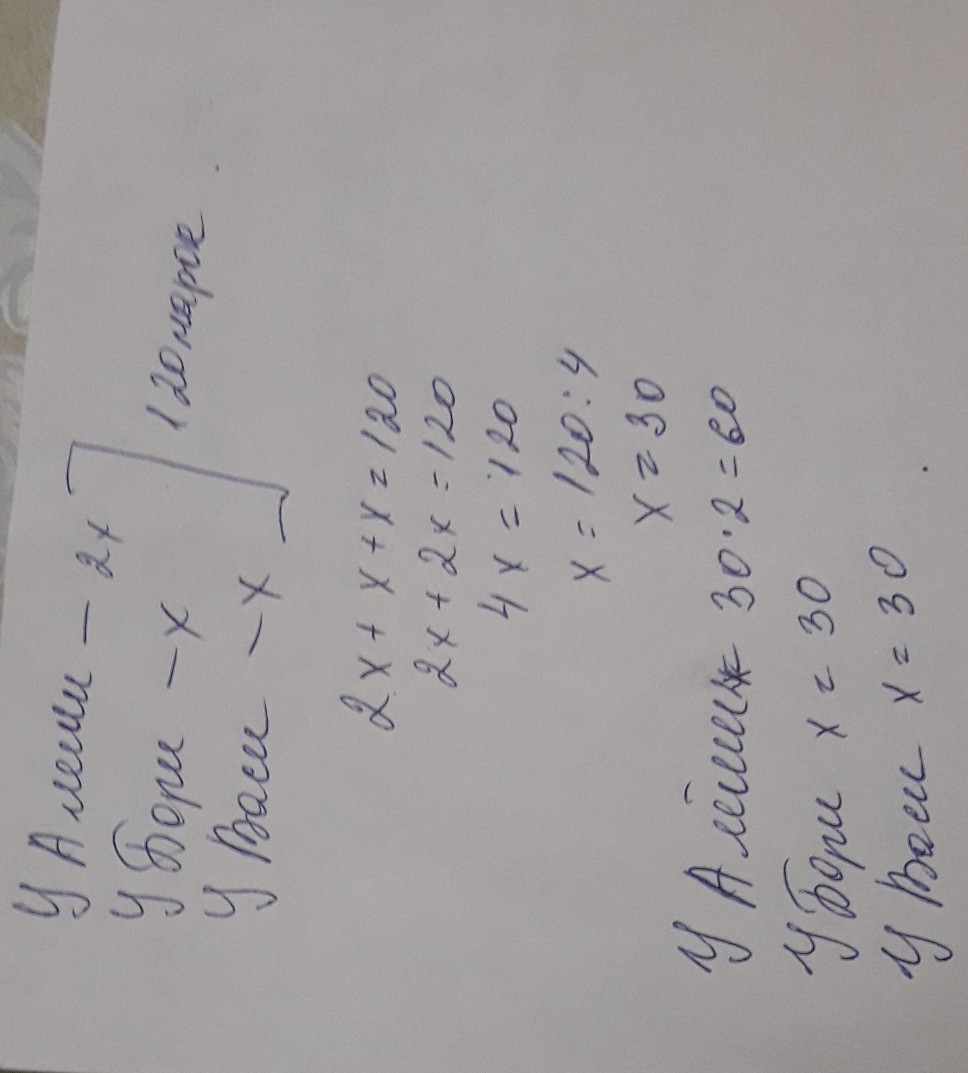 У Алеши - 2х
У Бори - х
У Васи - х
120 марок
2х + х + х = 120
2х + 2х = 120
4 х = 120
х = 120 : 4
х = 30
У Алёши 30 · 2 = 60
У Бори х = 30
У Васи х = 30